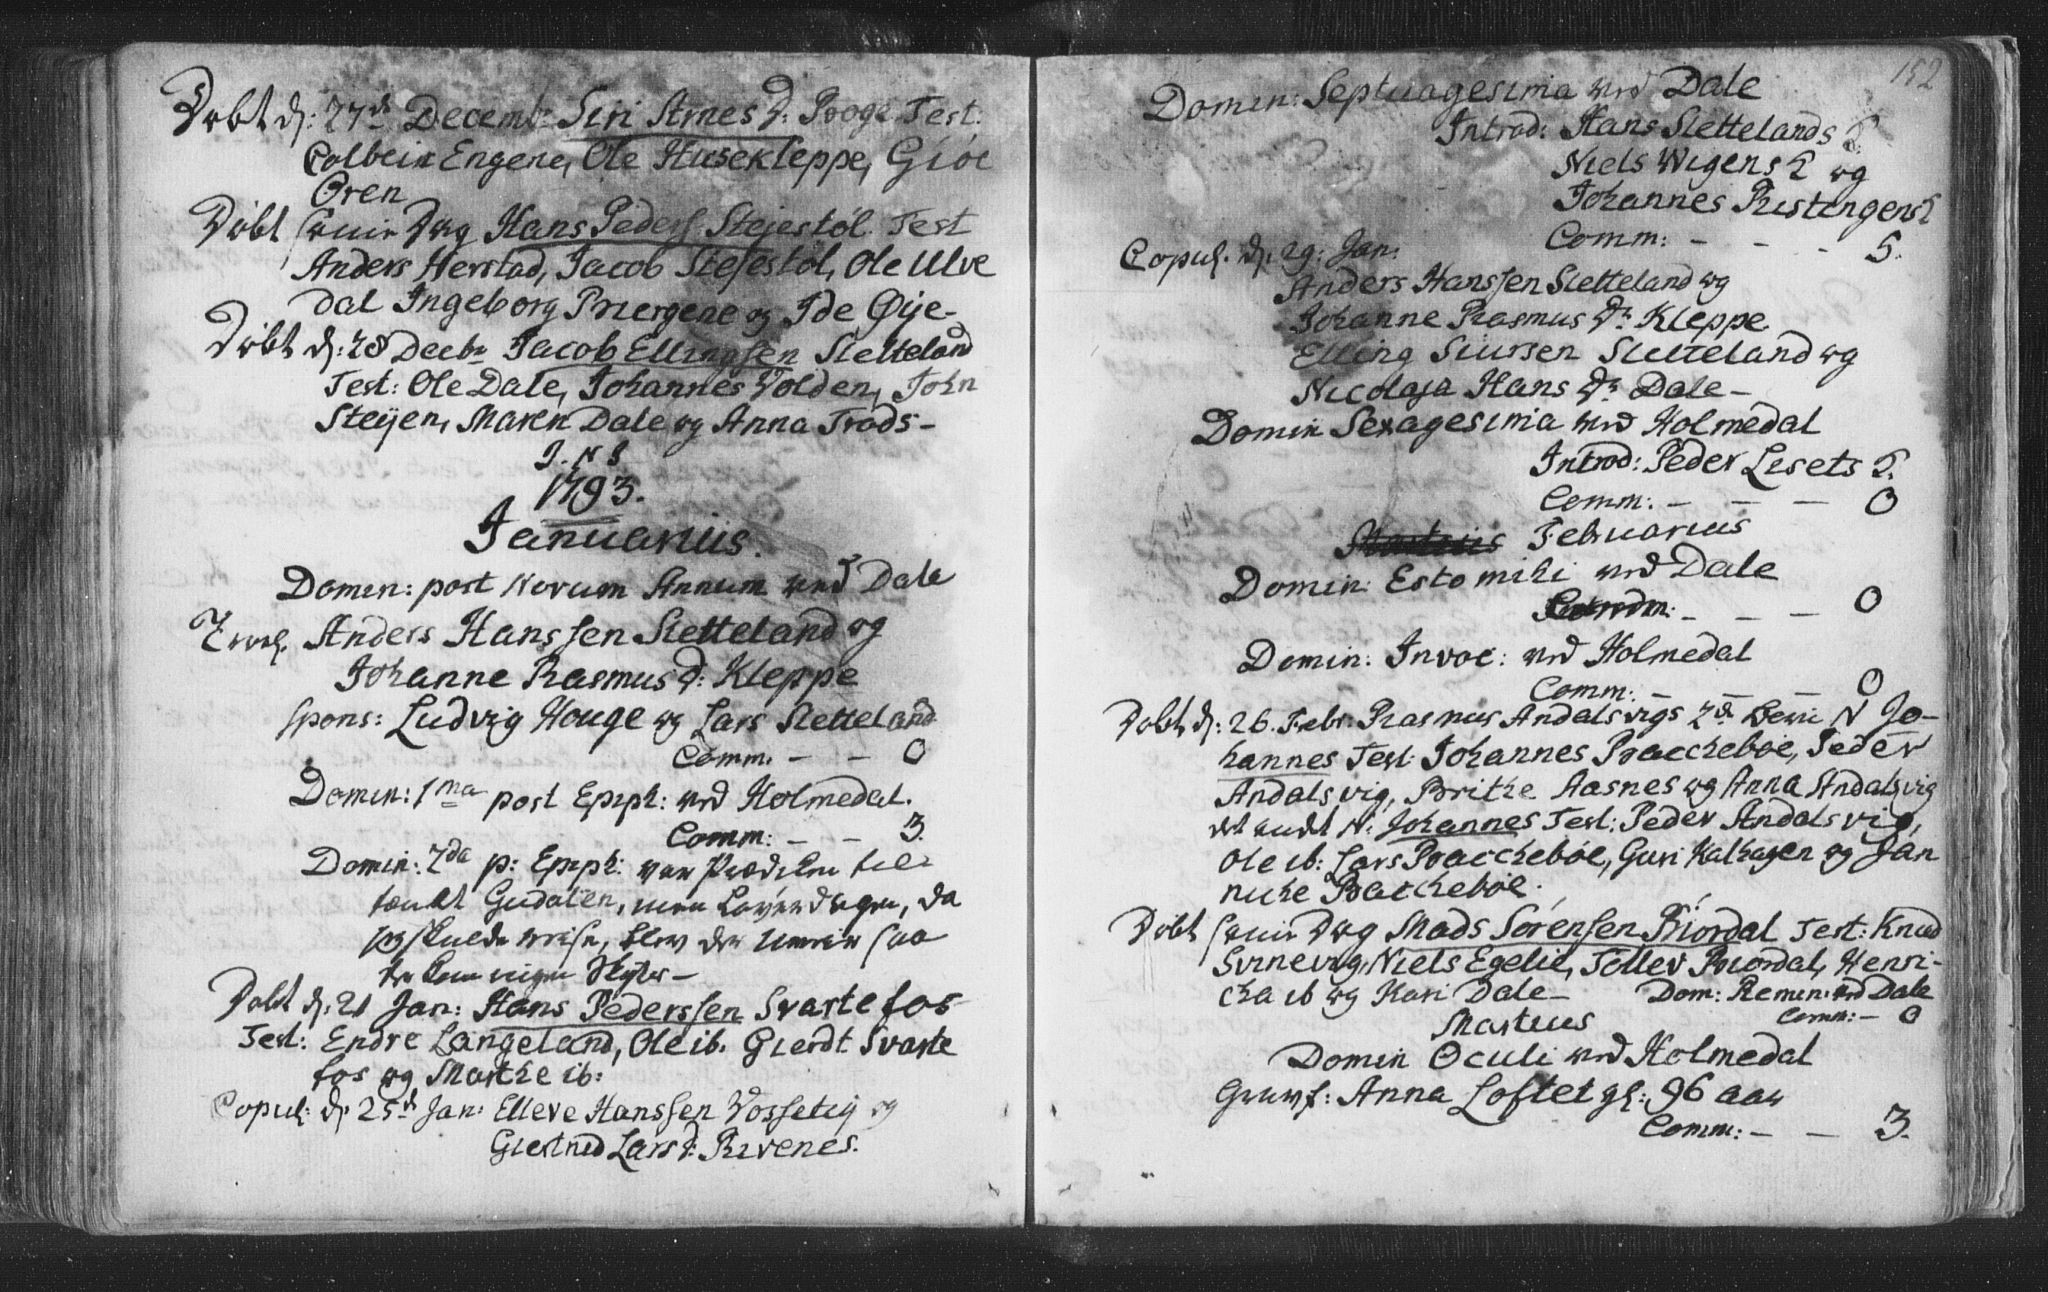 Døbt d: 27de Decemb: Siri Arnes D: Boge. Test:
Colbein Engene, Ole Husekleppe, Giøe
Øren
Døbt samme Dag Hans Peders Steiestøl. Test
Anders Herstad, Jacob Steiestøl, Ole Ulve
dal Ingeborg Biergene og Ide Øije-
Døbt d: 28 Decbr Jacob Ellingsen Sletteland
Test: Ole Dale, Johannes Volden, John
Steijen, Maren Dale og Anna Trods-
J. N J
1793.
Januarius.
Domin: post Novum Annum ved Dale
Trol. Anders Hanssen Sletteland og
Johanne Rasmus D: Kleppe
spons: Ludvig Houge og Lars Sletteland
Comm: - - 0
Domin: 1ma post Epiph: ved Holmedal.
Comm: - - 3.
Domin: 2da p: Epiph: var Prædiken til
tænkt Gudalen, men Løverdagen, da
jeg skulde reise, blev der
Døbt d: 21 Jan: Hans Pederssen Svartefos
Test: Endre Langeland, Ole ib. Gierdt Svarte
fos og Marthe ib:
Copul: d: 25de Jan: Elleve Hanssen Vosseteig og
Giertrud Lars D: Rivenes.
152
Domin: Septuagesima ved Dale
Introd: Hans Slettelands K.
Niels Wigens K og
Johannes Rustengens K
Comm: - - - 5.
Copul. d. 29: Jan:
Anders Hanssen Sletteland og
Johanne Rasmus Dr Kleppe
Elling Siursen Sletteland og
Nicolaja Hans Dr Dale-
Domin Sexagesima ved Holmedal
Introd: Peder Lesets K.
Comm: - - - 0
Februarius
Domin: Estomihi ved Dale
Comm: - - - 0
Domin: Invoc: ved Holmedal
Comm: - - - 0
Døbt d: 26. Febr: Rasmus Andalsvigs 2de Børn N Jo-
hannes Test: Johannes Bacchebøe, Peder
Andalsvig, Brithe Aasnes og Anna Andalsvig
det andet N: Johannes Test: Peder Andalsvig,
Ole ib: Lars Bacchebøe, Guri Kalhagen og Jan
niche Bacchebøe.
Døbt samme Dag Mads Sørensen Biordal Test: Knud
Svinevig, Niels Egelie, Tollev Biordal, Henri-
cha ib og Kari Dale- Dom: Remin: ved Dale
Comm: - 0
Martius
Domin Oculi ved Holmedal
Gravf: Anna Loftet gl: 96 aar
Comm: - - 3.